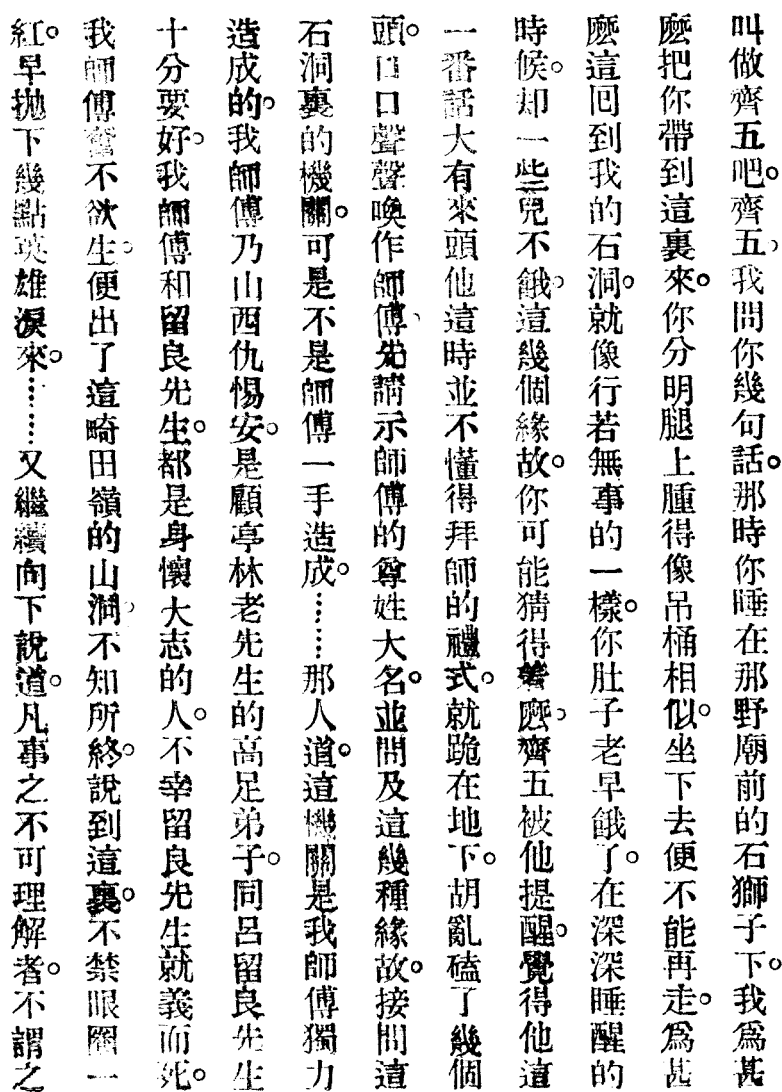 叫做齊五吧。齊五、我問你幾句話。那時你睡在那野廟前的石獅子下。我爲甚
麽把你帶到這裏來。你分明腿上腫得像吊桶相似。坐下去便不能再走。爲甚
麽這回到我的石洞。就像行若無事的一樣。你肚子老早餓了。在深深睡醒的
時候。却一些兒不餓。這幾個緣故。你可能猜得着麽。齊五被他提醒。覺得他這
一番話大有來頭他這時並不懂得拜師的禮式。就跪在地下。胡亂磕了幾個
頭。口口聲聲喚作師傅、先請示師傅的尊姓大名。並問及這幾種緣故。接問這
石洞裏的機關。可是不是師傅一手造成。……那人道。這機關是我師傅獨力
造成的。我師傅乃山西仇惕安。是顧亭林老先生的高足弟子。同呂留良先生
十分要好。我師傅和留良先生。都是身懷大志的人。不幸留良先生就義而死。
我師傅奮不欲生。便出了這畸田嶺的山洞。不知所終。說到這裏。不禁眼圈一
紅。早拋下幾點英雄淚來。……又繼續向下說道。凡事之不可理解者。不謂之